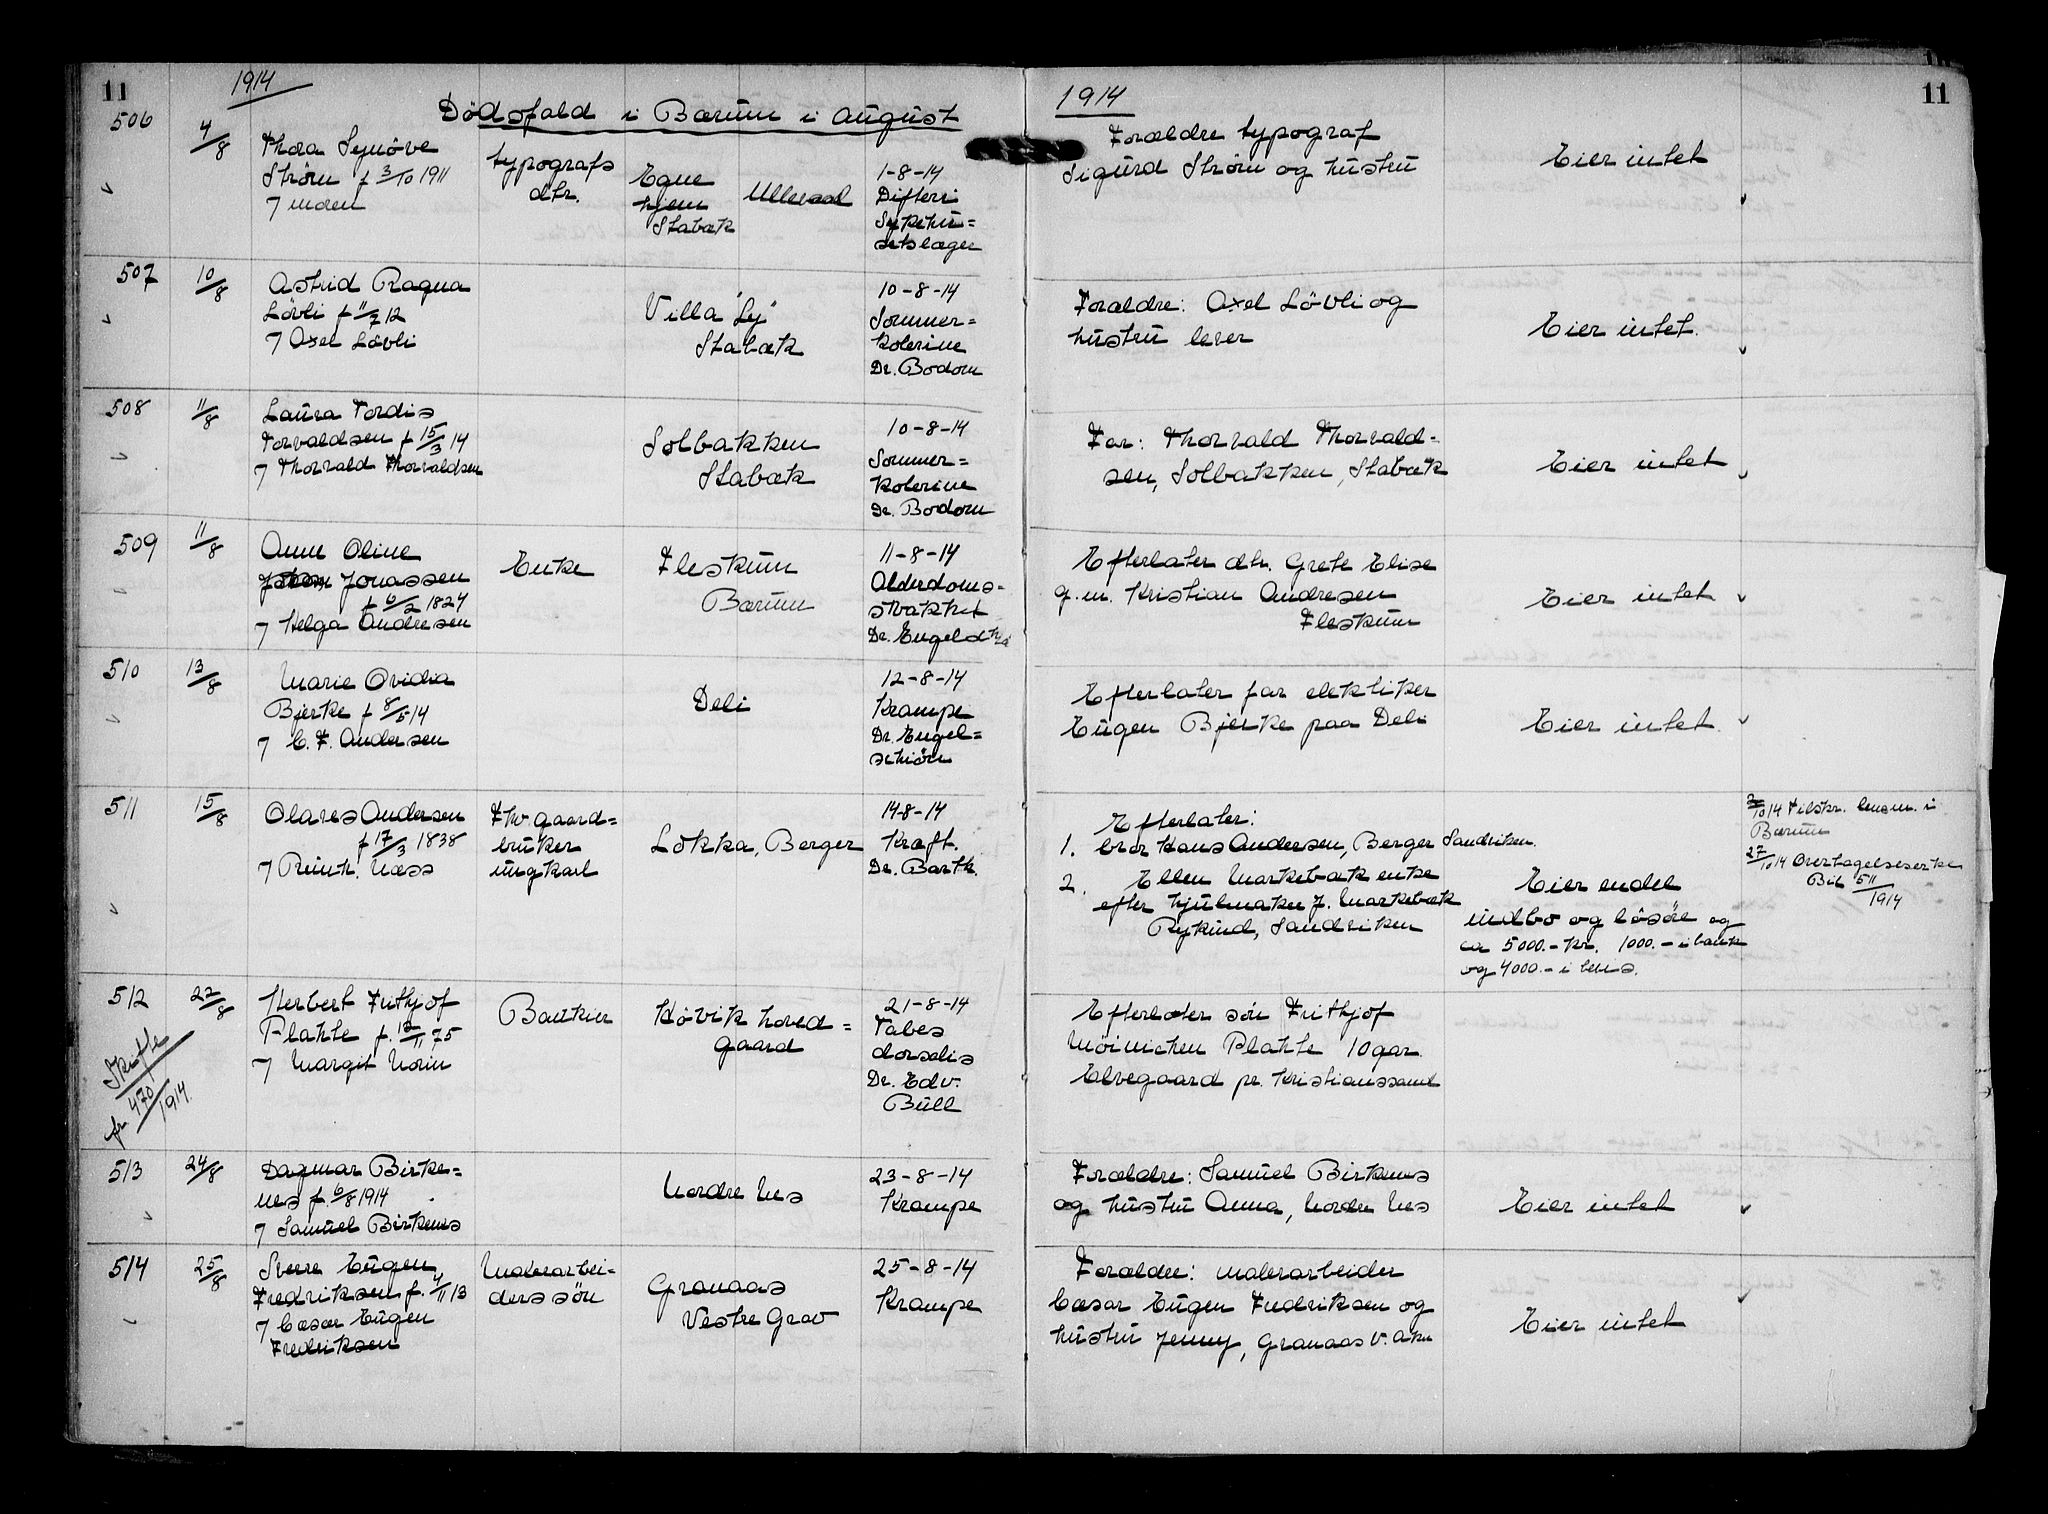 11
1914
Dödsfald i Bærum i August
1914
11
506
4/8
Thora Synöve
Ström f 3/10 1911
7 moren
typografs
dtr.
Egne
hjem
Stabæk
Ullevaal
1-8-14
Difteri
Sykehu=
setslæger
Forældre typograf
Sigurd Ström og hustru
Eier intet
507
10/8
Astrid Ragna
Lövli f 11/7 12
7 Axel Lövli
Villa "Ly"
Stabæk
10-8-14
Sommer=
kolerine
Dr. Bodom
Forældre: Axel Lövli og
hustru lever
Eier intet.
508
11/8
Laura Tordis
Torvaldsen f 15/3 14
7 Thorvald Thorvaldsen
Solbakken
Stabæk
10-8-14
Sommer=
kolerine
Dr. Bodom
Far: Thorvald Thorvald=
sen, Solbakken, Stabæk
Eier intet
509
11/8
Anne Oline
Jonassen
f 6/2 1824
7 Helga Andresen
Enke
Fleskum
Bærum
11-8-14
Alderdoms-
svakhet
Efterlater dtr. Grete Elise
g.m. Kristian Andresen
Fleskum
Eier intet
510
13/8
Marie Ovidia
Bjerke f 8/5 14
7 C. F. Andersen
Deli
12-8-14
Krampe
Dr. Engel=
schiön
Efterlater far elektiker
Eugen Bjerke paa Deli
Eier intet.
511
15/8
Olaves Andersen
f 17/3 1838
7 Reinh. Næss
Fhv. gaard=
bruker
ungkarl
Lökka, Berger
14-8-14
Kræft.
Dr. Barth.
Efterlater:
1. bror Hans Andersen, Berger Sandviken.
2. Ellen Markebæk enke
efter hjulmaker J. Markebæk
Rykind, Sandviken
Eier endel
indbo og lösöre og
ca 5000.- kr. 1000.- i bank
og 4000.- i bevis.
2/10 14 Tilskr. lensm. i
Bærum
27/10 14 Overtagelseserkl.
Bil 511/1914
512
22/8
Skifte
pr. 470/1914
Herbert Frithjof
Plahte f. 12/11 75
7 Margit Morin
Bankier
Hövik hoved=
gaard
21-8-14
Tabes
dorsalis
Dr. Edv.
Bull
Efterlater sön Frithjof
Möinichen Plahte 10 aar.
Elvegaard pr. Kristianssand
513
24/8
Dagmar Birke=
nes f. 6/8 1914
7 Samuel Birkenes
Nordre Nes
23-8-14
Krampe
Forældre: Samuel Birkenes
og hustru Anna, Nordre Nes
Eier intet
514
25/8
Sverre Eugen
Fredriksen f. 4/11 13
7 Cæsar Eugen
Fredriksen
Malerarbei=
ders sön
Granaas
Vestre Grav
25-8-14
Krampe
Forældre: malerarbeider
Cæsar Eugen Fredriksen og
hustru Jenny, Granaas V. Aker
Eier intet